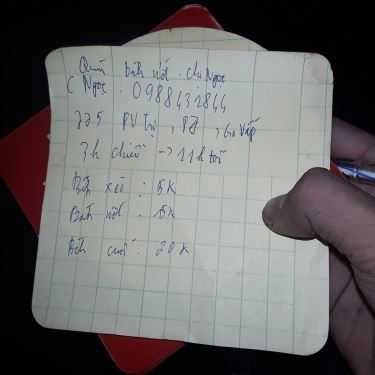 Quán bánh ướt chị Ngọc
C Ngọc. 0988431844
225 PV Trị, P7, Gò Vấp
3h chiều → 11h tối
Bột xếc : 5K
Bánh ướt : 5K
Bánh cuốn : 20K